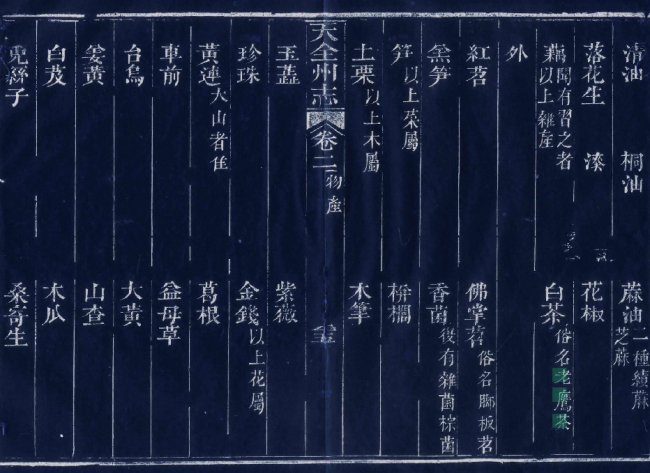 清油 桐油 蔴油二種績蔴芝蔴
落花生 漆 花椒
藕間有習之者以上雜產 白茶俗名老鷹茶
外
紅苕 佛掌苕俗名腳板苕
羔笋 香菌後有雜菌棕菌
笋以上菜屬 栟櫚
土栗以上木屬 木筆
天全州志 卷二 物產
玉蓋 紫薇
珍珠 金錢以上花屬
黃連大山者佳 葛根
車前 益母草
台烏 大黃
姜黃 山查
白芨 木瓜
兎絲子 桑寄生